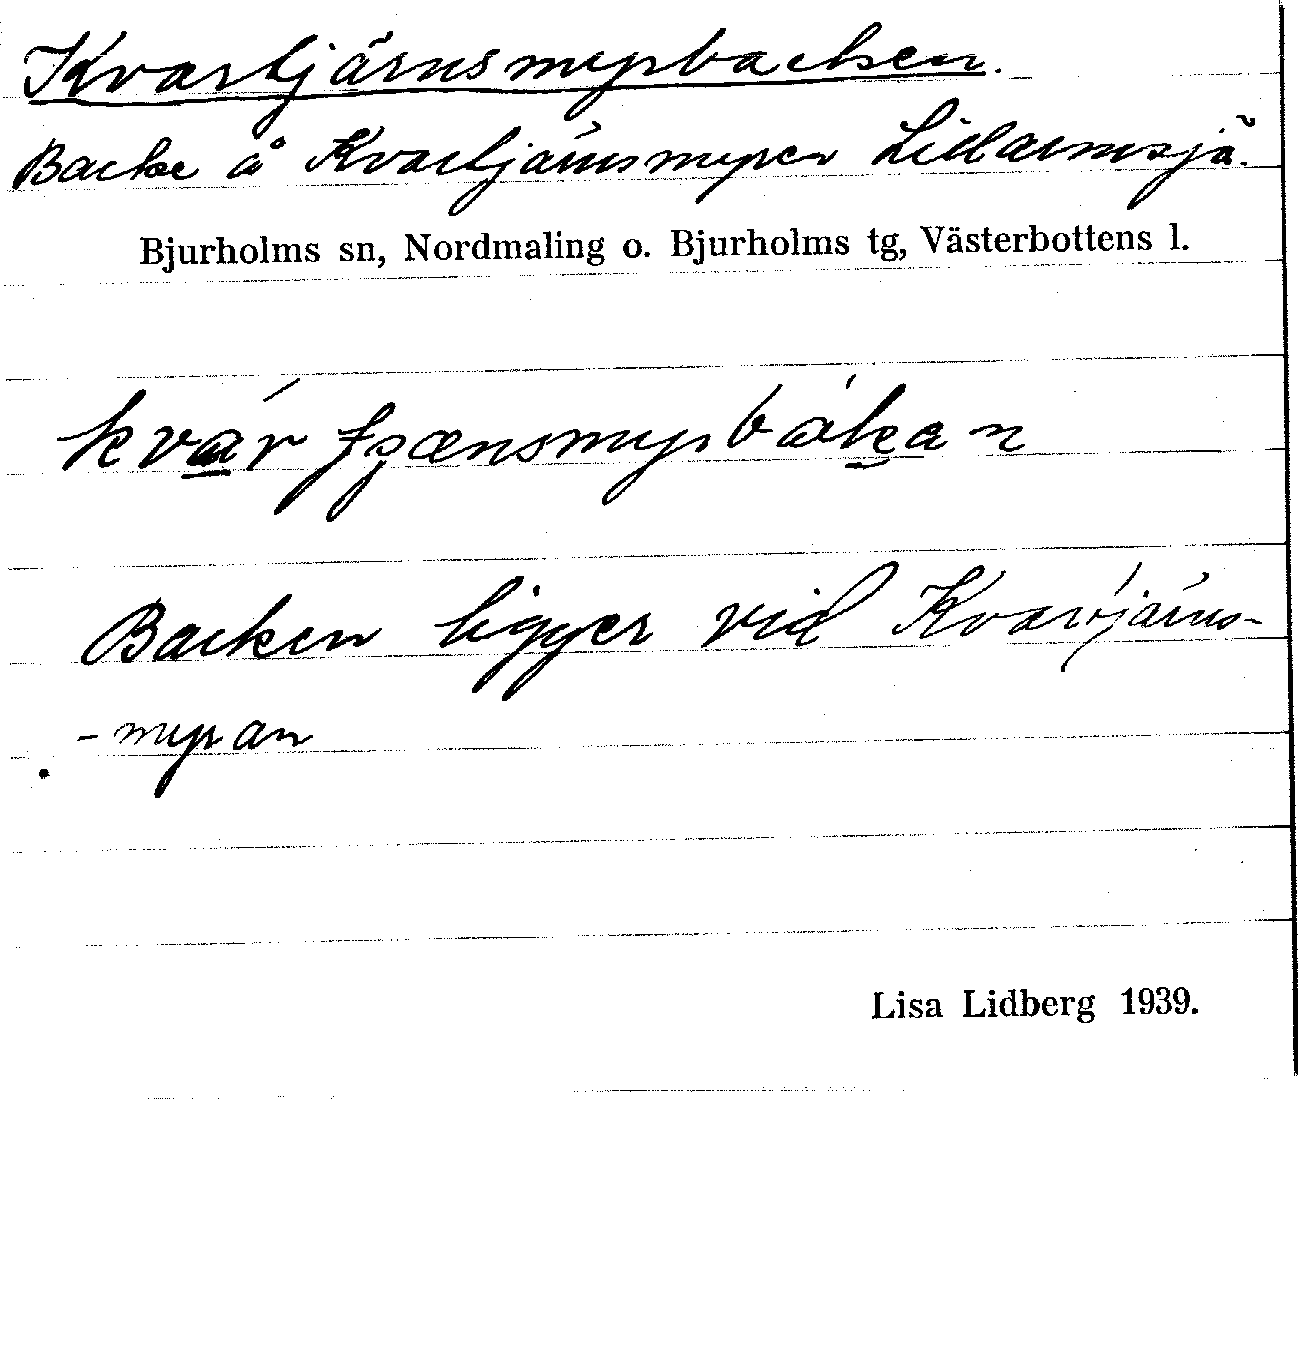 Kvartjärnsmyrbacken.
Backe å Kvartjärnsmyren Lillarmsjö.
Bjurholms sn, Nordmaling o. Bjurholms tg, Västerbottens l.
Backen ligger vid Kvartjärns-
-myran
Lisa Lidberg 1939.